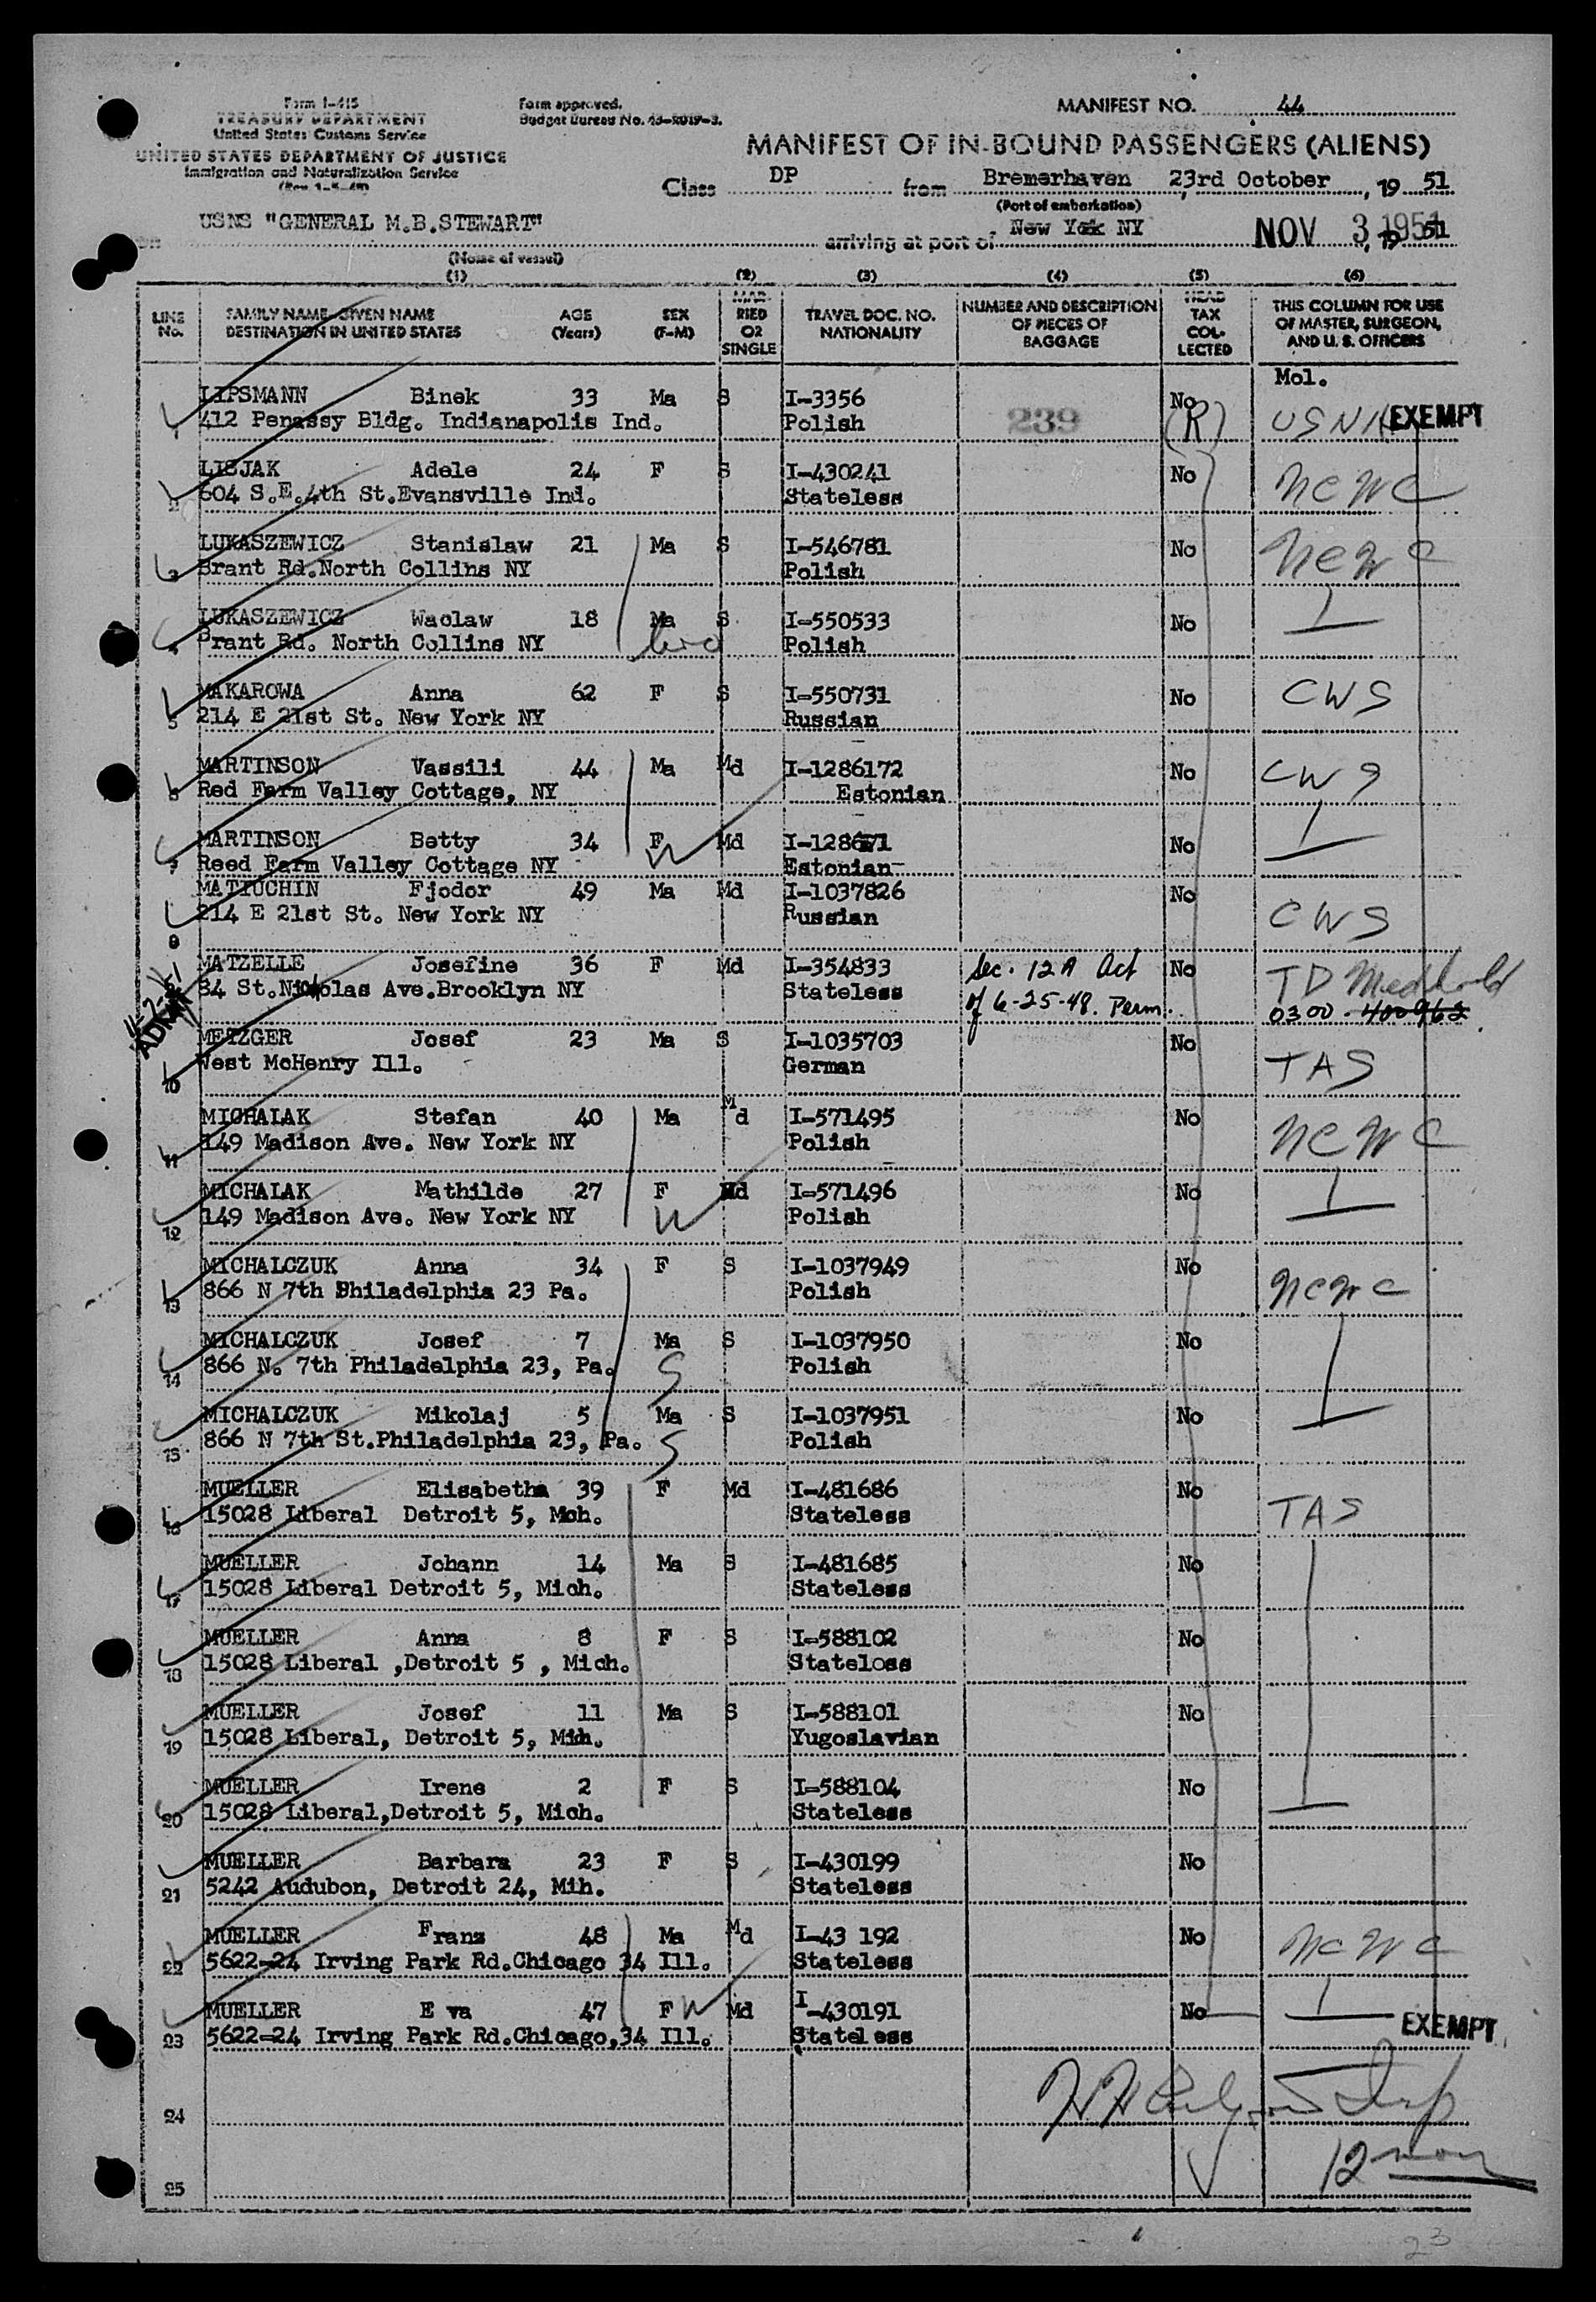 Form I-415
TREASURY DEPARTMENT
United States Customs Service
UNITED STATES DEPARTMENT OF JUSTICE
Immigration and Naturalization Service
Form approved.
Budget Bureau No. 43-R019-3.
MANIFEST NO. 44
MANIFEST OF IN-BOUND PASSENGERS (ALIENS)
Class DP from Bremerhaven 23rd October, 19 51
(Port of embarkation)
USNS "GENERAL M.B.STEWART" arriving at port of New York NY NOV 3 1951, 19 51
(Name of vessel)
(1) (2) (3) (4) (5) (6)
LINE No. FAMILY NAME-GIVEN NAME DESTINATION IN UNITED STATES AGE (Years) SEX (F-M) MAR- RIED OR SINGLE TRAVEL DOC. NO. NATIONALITY NUMBER AND DESCRIPTION OF PIECES OF BAGGAGE HEAD TAX COL- LECTED THIS COLUMN FOR USE OF MASTER, SURGEON, AND U. S. OFFICERS
Mol.
LIPSMANN Binek 33 Ma S I-3356 No
1 412 Penassy Bldg. Indianapolis Ind. Polish 239 (R) USNA EXEMPT
LISJAK Adele 24 F S I-430241 No
2 604 S.E.4th St.Evansville Ind. Stateless NCWC
LUKASZEWICZ Stanislaw 21 Ma S I-546781 No
3 Brant Rd.North Collins NY Polish NCWC
LUKASZEWICZ Waclaw 18 Ma S I-550533 No
4 Brant Rd. North Collins NY Polish
MAKAROWA Anna 62 F S I-550731 No CWS
5 214 E 21st St. New York NY Russian
MARTINSON Vassili 44 Ma Md I-1286172 No CWS
6 Red Farm Valley Cottage, NY Estonian
MARTINSON Betty 34 F Md No
7 Reed Farm Valley Cottage NY W Estonian
MATIUCHIN Fjodor 49 Ma Md I-1037826 No
8 214 E 21st St. New York NY Russian CWS
MATZELLE Josefine 36 F Md I-354833 Sec. 12A Act No TD Med hold
9 84 St.Nicholas Ave.Brooklyn NY Stateless of 6-25-48. Perm. 0300-400962
METZGER Josef 23 Ma S I-1035703 No
10 West McHenry Ill. German TAS
MICHALAK Stefan 40 Ma Md I-571495 No
11 149 Madison Ave. New York NY Polish NCWC
MICHALAK Mathilde 27 F Md I-571496 No
12 149 Madison Ave. New York NY W Polish
MICHALCZUK Anna 34 F S I-1037949 No
13 866 N 7th Philadelphia 23 Pa. Polish NCWC
MICHALCZUK Josef 7 Ma S I-1037950 No
14 866 N. 7th Philadelphia 23, Pa. S Polish
MICHALCZUK Mikolaj 5 Ma S I-1037951 No
15 866 N 7th St.Philadelphia 23, Pa. S Polish
MUELLER Elisabetha 39 F Md I-481686 No
16 15028 Liberal Detroit 5, Mch. Stateless TAS
MUELLER Johann 14 Ma S I-481685 No
17 15028 Liberal Detroit 5, Mich. Stateless
MUELLER Anna 8 F S I-588102 No
18 15028 Liberal ,Detroit 5 , Mich. Stateloss
MUELLER Josef 11 Ma S I-588101 No
19 15028 Liberal, Detroit 5, Mich. Yugoslavian
MUELLER Irene 2 F S I-588104 No
20 15028 Liberal,Detroit 5, Mich. Stateless
MUELLER Barbara 23 F S I-430199 No
21 5242 Audubon, Detroit 24, Mih. Stateless
MUELLER Franz 48 Ma Md I-43 192 No
22 5622-24 Irving Park Rd.Chicago 34 Ill. Stateless NCWC
MUELLER E va 47 F W Md I-430191 No
23 5622-24 Irving Park Rd.Chicago,34 Ill. Stateless EXEMPT
24
25 12
23